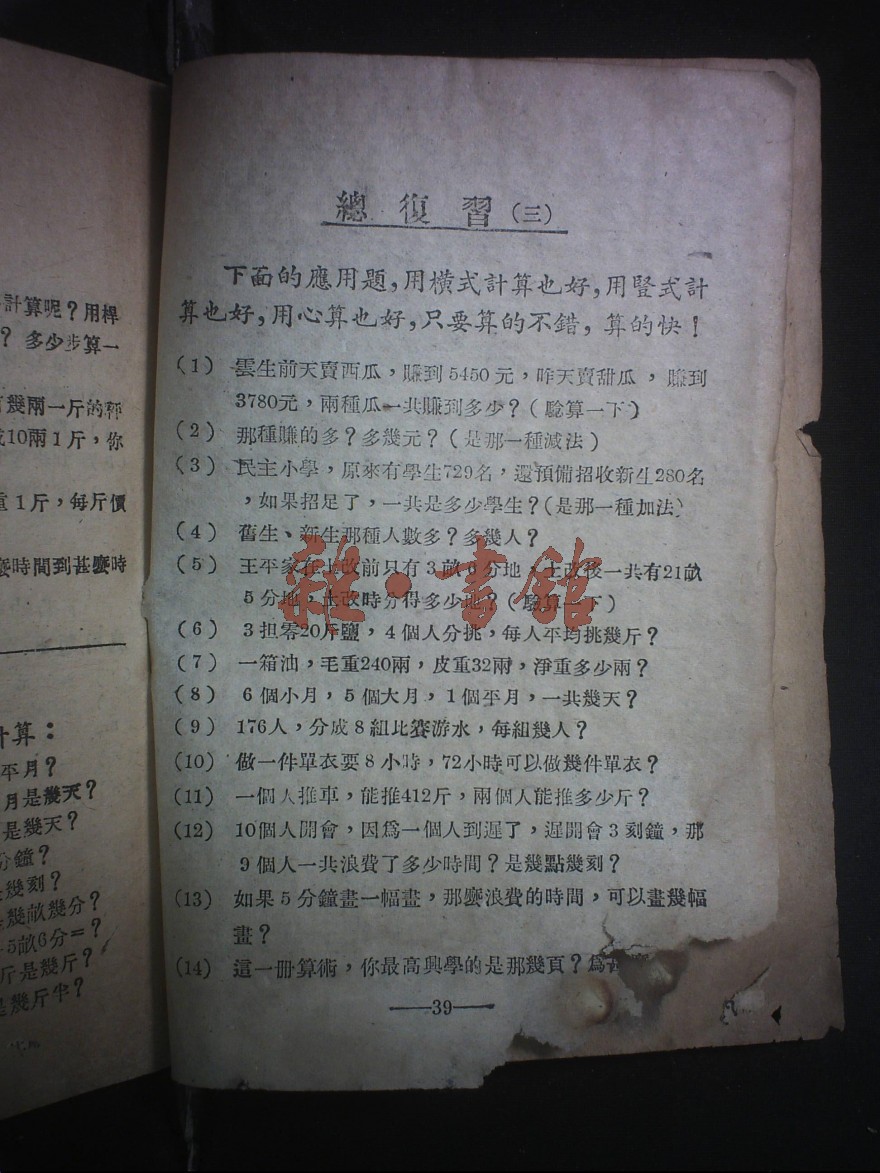 計算呢？用桿
？多少步算一
有幾兩一斤的秤
成10兩1斤，你
重1斤，每斤價
麼時間到甚麼時
計算：
平月？
月是幾天？
是幾天？
分鐘？
幾刻？
幾畝幾分？
5畝6分＝？
斤是幾斤？
是幾斤半？
總復習（三）
下面的應用題，用橫式計算也好，用豎式計
算也好，用心算也好，只要算的不錯，算的快！
（1）雲生前天賣西瓜，賺到5450元，昨天賣甜瓜，賺到
3780元，兩種瓜一共賺到多少？（驗算一下）
（2）那種賺的多？多幾元？（是那一種減法）
（3）民主小學，原來有學生729名，還預備招收新生280名
，如果招足了，一共是多少學生？（是那一種加法）
（4）舊生、新生那種人數多？多幾人？
（5）王平家在土改前只有3畝6分地，土改後一共有21畝
5分地，土改時分得多少地？（驗算一下）
（6）3担零20斤鹽，4個人分挑，每人平均挑幾斤？
（7）一箱油，毛重240兩，皮重32兩，淨重多少兩？
（8）6個小月，5個大月，1個平月，一共幾天？
（9）176人，分成8組比賽游水，每組幾人？
（10）做一件單衣要8小時，72小時可以做幾件單衣？
（11）一個人推車，能推412斤，兩個人能推多少斤？
（12）10個人開會，因爲一個人到遲了，遲開會3刻鐘，那
9個人一共浪費了多少時間？是幾點幾刻？
（13）如果5分鐘畫一幅畫，那麼浪費的時間，可以畫幾幅
畫？
（14）這一册算術，你最高興學的是那幾頁？爲
—39—
雜·書館